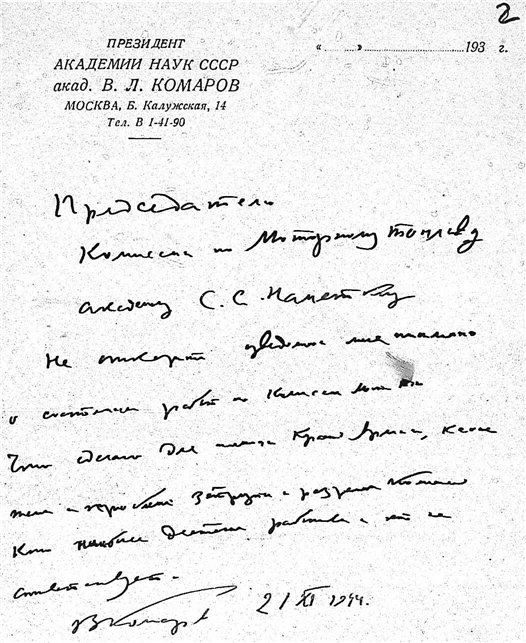 2
ПРЕЗИДЕНТ
АКАДЕМИИ НАУК СССР
акад. В. Л. КОМАРОВ
МОСКВА, Б. Калужская, 14
Тел. В 1-41-90
«.......»..............................193 г.
Председателю
Комиссии по Моторному топливу
академику С. С. Наметкину
Не откажите уведомить меня
о состоянии работ по Комиссии
Что сделано для Красной Армии, какие
и
Кто наиболее работника и кто не
соответствует.
В Комаров 21 XI 1944.